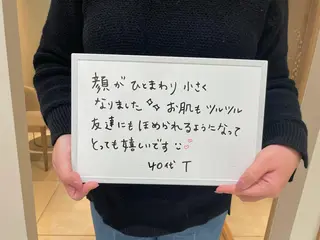 顔が ひとまわり 小さく
なりました✨ お肌も ツルツル
友達にも ほめられるようになって
とっても嬉しいです☺♡
40代 T